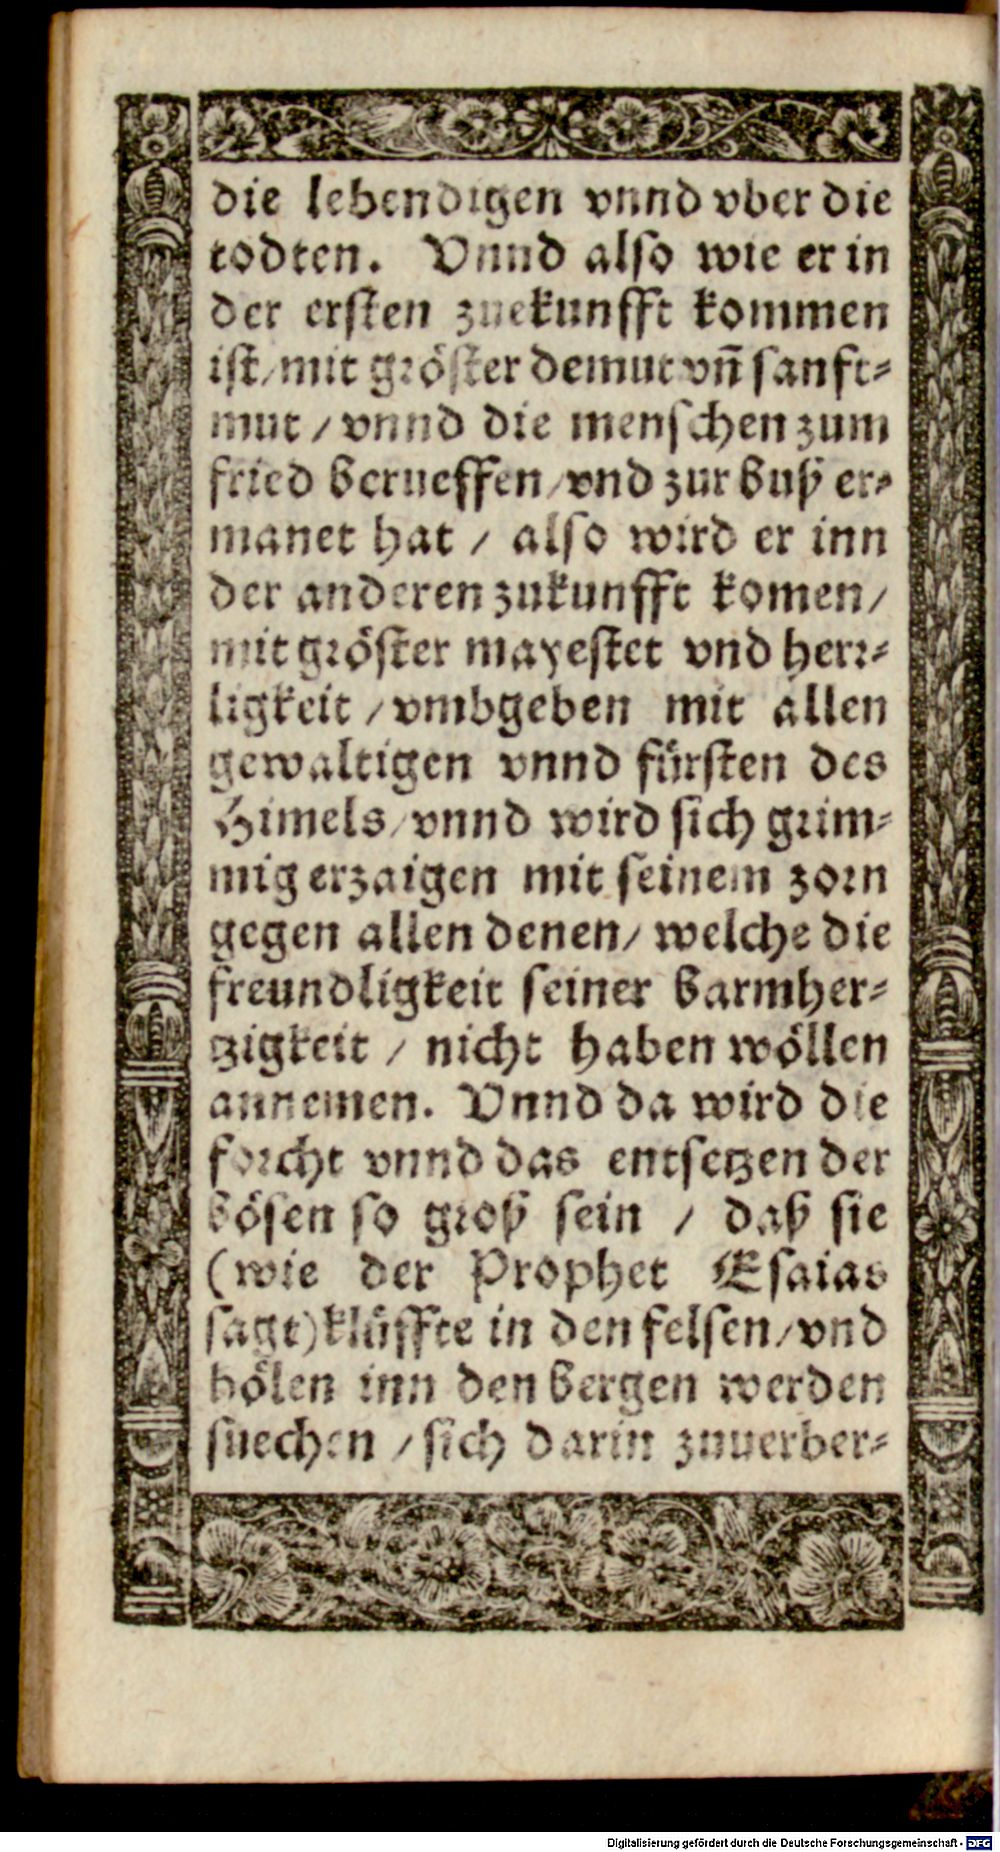 die lebendigen vnnd vber die
todten. Vnnd also wie er in
der ersten zuekunfft kommen
ist/ mit gröster demut vn̄ sanft-
mut / vnnd die menschen zum
fried berueffen/ vnd zur buß er-
manet hat / also wird er inn
der anderen zukunfft komen/
mit gröster mayestet vnd herr-
ligkeit / vmbgeben mit allen
gewaltigen vnnd fürsten des
Himels/ vnnd wird sich grim-
mig erzaigen mit seinem zorn
gegen allen denen/ welche die
freundligkeit seiner barmher-
tzigkeit / nicht haben wöllen
annemen. Vnnd da wird die
forcht vnnd das entsetzen der
bösen so groß sein / daß sie
(wie der Prophet Esaias
sagt) klüffte in den felsen/ vnd
hölen inn den bergen werden
suechen / sich darin zuuerber-
Digitalisierung gefördert durch die Deutsche Forschungsgemeinschaft - DFG